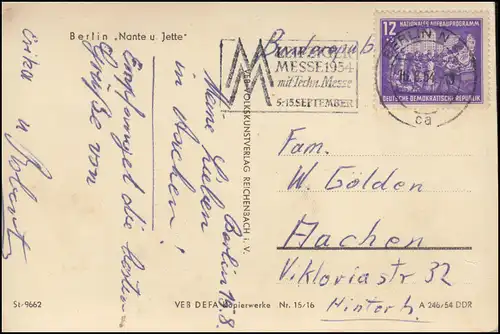 Berlin „Nante u. Jette"
Berlin 15.8.
Meine Lieben
in Aachen!
Empfanget die besten
Grüße von
Erika
u Robert
St-9662
VEB VOLKSKUNSTVERLAG REICHENBACH i. V.
LEIPZIGER
MESSE 1954
mit Techn. Messe
5.-15. SEPTEMBER
Bundesrepub.
BERLIN N
ca
12 NATIONALES AUFBAUPROGRAMM
DEUTSCHE DEMOKRATISCHE REPUBLIK
Fam.
W. Gölden
Aachen
Viktoriastr 32
Hinterh.
VEB DEFA Kopierwerke Nr. 15/16 A 246/54 DDR